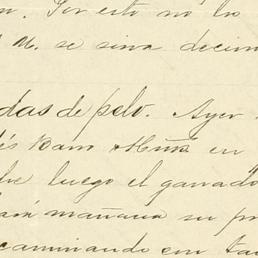 n. Por esto no lo
M. se sirva decir
das de pelo. Ayer
és Caro Muñz en
luego el ganado
mañana su pr
caminando con ta